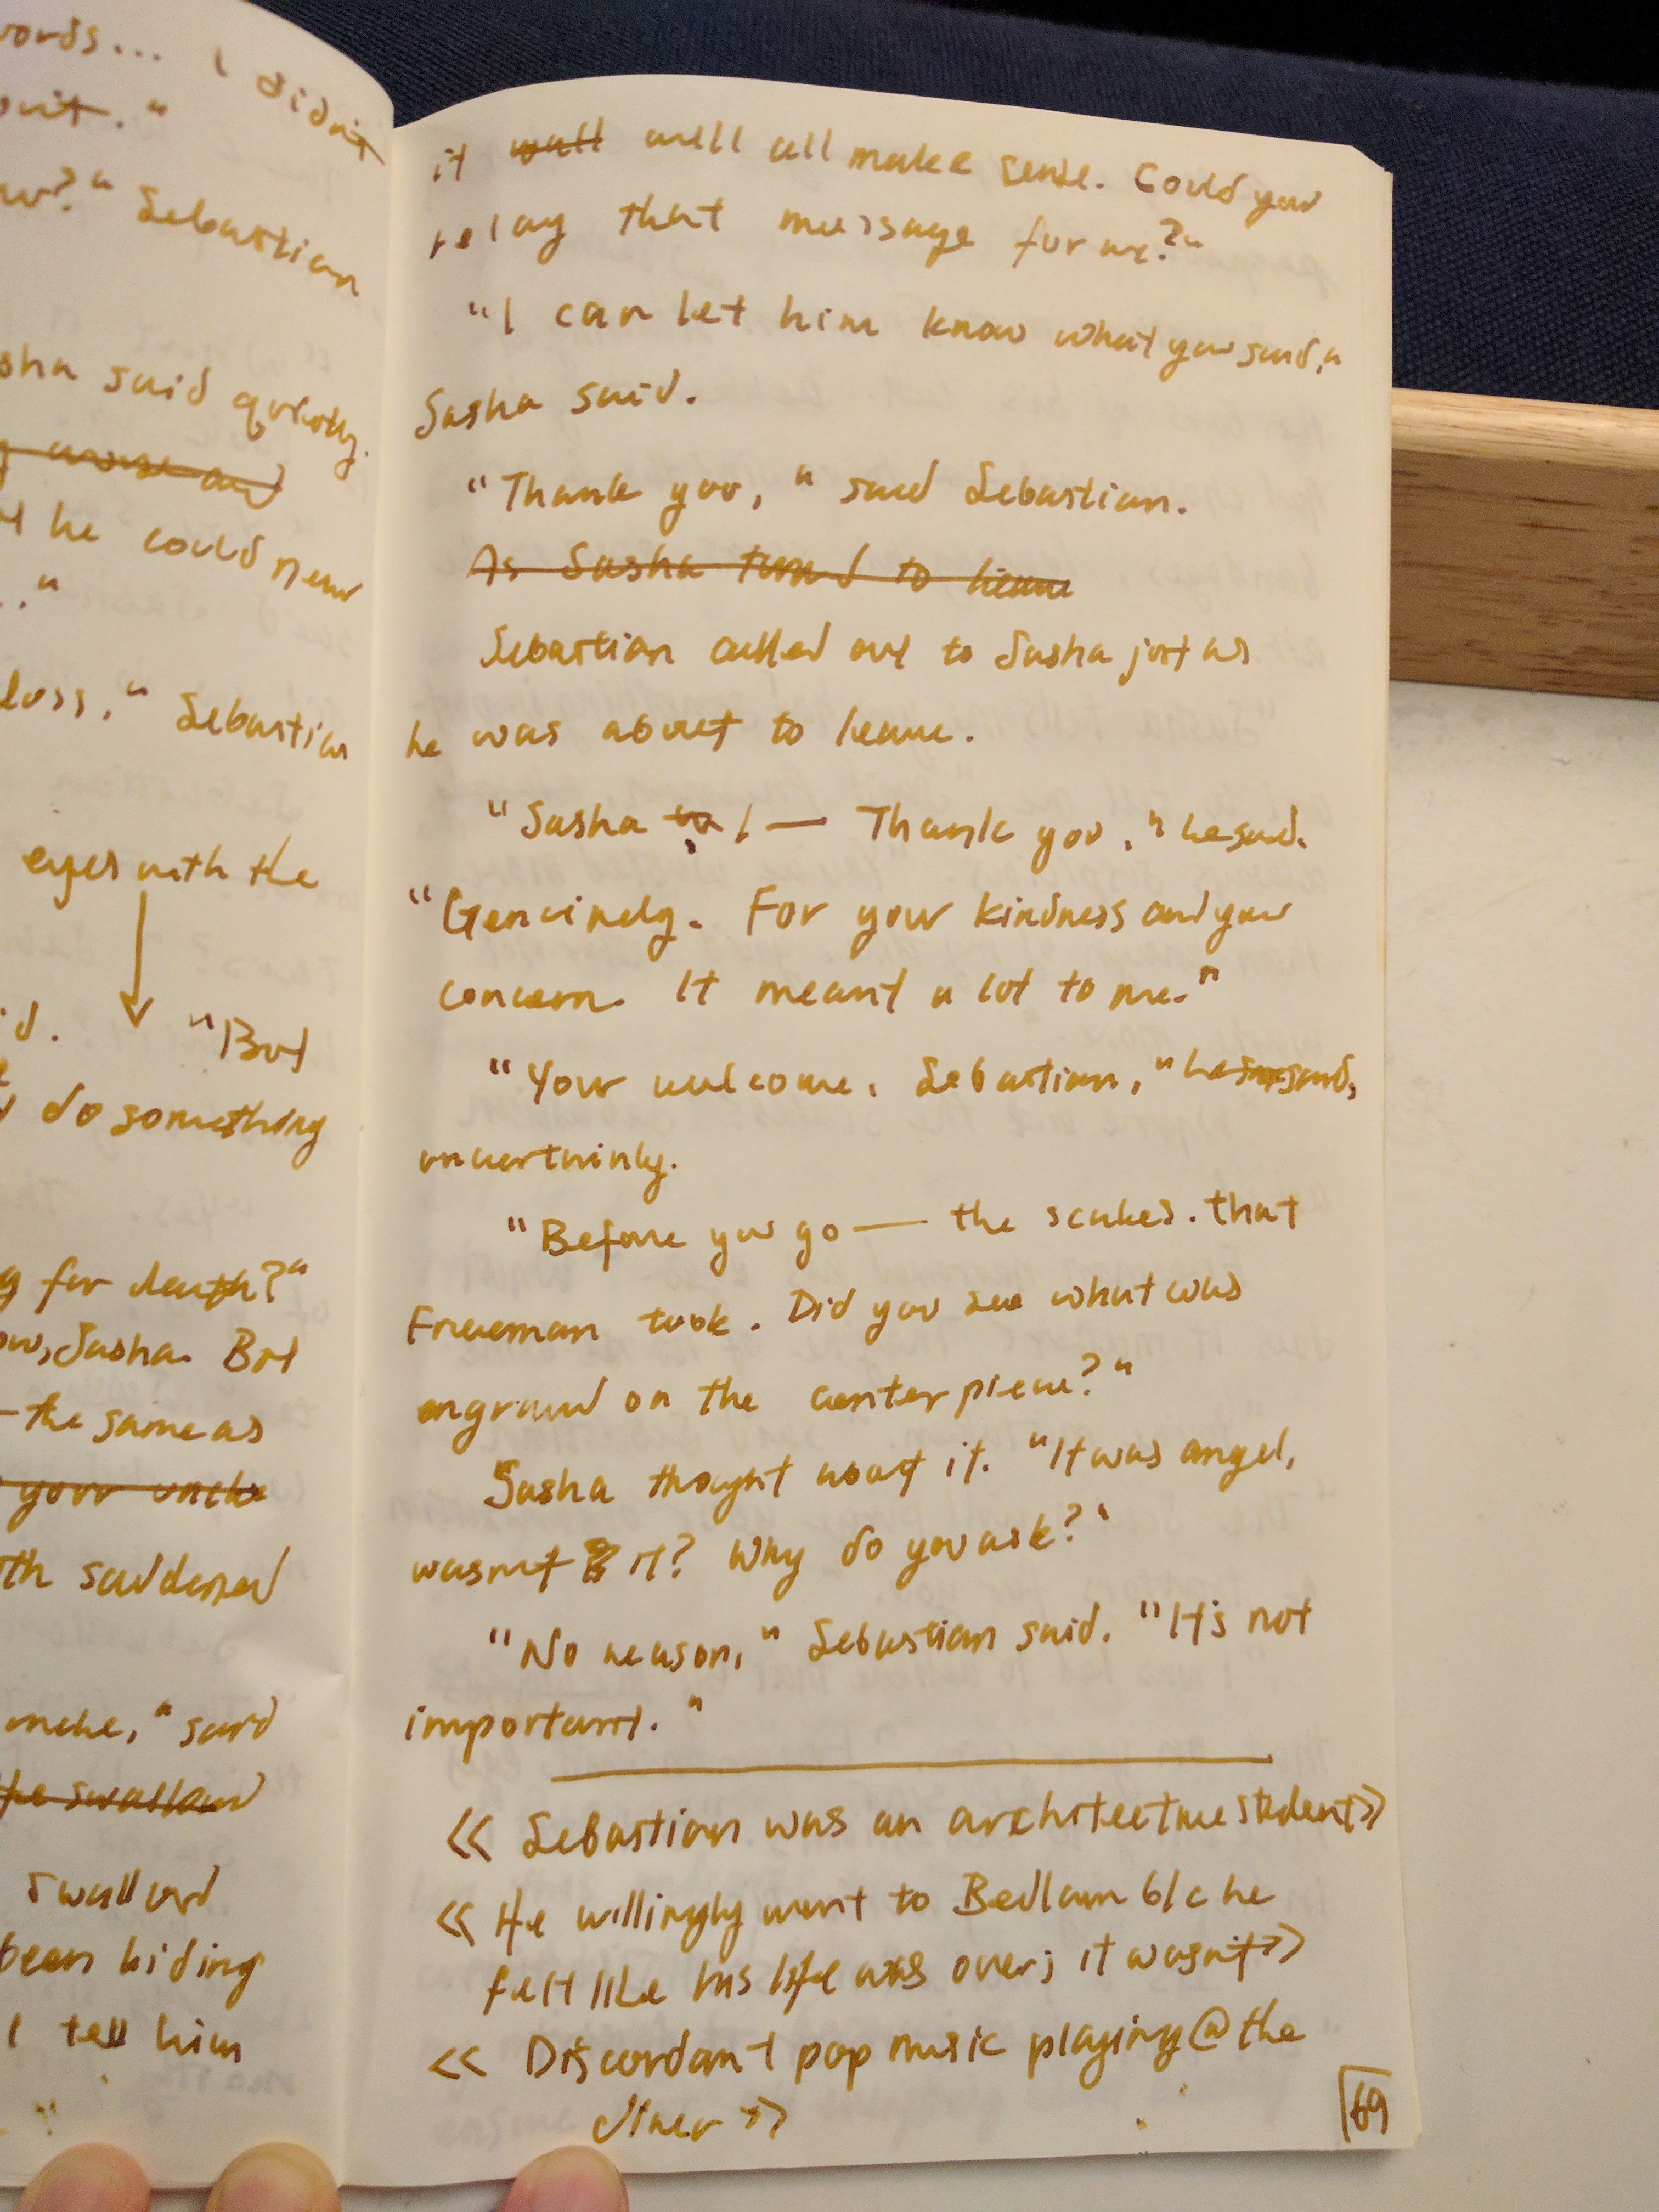 words... I didn't
."
?" Sebastian
sha said quietly.
arose and
he could
."
loss," Sebastian
eyes with the
"But
do something
for death?"
Sasha. But
— the same as
your uncle
saddened
said
the swallow
swallowed
been hiding
I tell him
it wall will all make sense. Could you
relay that message for me?"
"I can let him know what you said,"
Sasha said.
"Thank you," said Sebastian.
As Sasha turned to leave
Sebastian called out to Sasha just as
he was about to leave.
"Sasha I — Thank you," he said.
"Genuinely. For your kindness and your
concern. It meant a lot to me."
"Your welcome, Sebastian," he said,
uncertainly.
"Before you go — the scales. that
Freeman took. Did you see what was
engraved on the center piece?"
Sasha thought about it. "It was angel,
wasn't it? Why do you ask?"
"No reason," Sebastian said. "It's not
important."
<< Sebastian was an architecture student>>
<< He willingly went to Bedlam b/c he
felt like his life was over; it wasn't>>
<< Discordant pop music playing @ the
diner >>
69